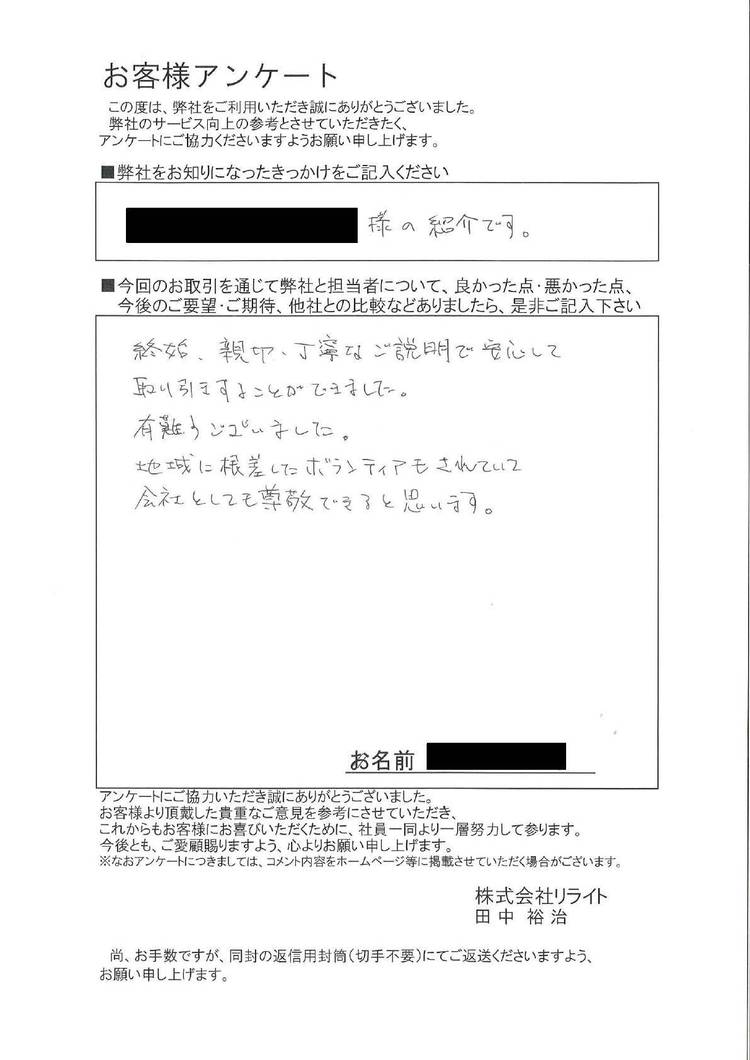 お客様アンケート
この度は、弊社をご利用いただき誠にありがとうございました。
弊社のサービス向上の参考とさせていただきたく、
アンケートにご協力くださいますようお願い申し上げます。
■弊社をお知りになったきっかけをご記入ください
様の紹介です。
■今回のお取引を通じて弊社と担当者について、良かった点・悪かった点、
今後のご要望・ご期待、他社との比較などありましたら、是非ご記入下さい
終始、親切、丁寧なご説明で安心して
取り引きすることができました。
有難うございました。
地域に根差したボランティアもされていて
会社としても尊敬できると思います。
お名前
アンケートにご協力いただき誠にありがとうございました。
お客様より頂戴した貴重なご意見を参考にさせていただき、
これからもお客様にお喜びいただくために、社員一同より一層努力して参ります。
今後とも、ご愛顧賜りますよう、心よりお願い申し上げます。
※なおアンケートにつきましては、コメント内容をホームページ等に掲載させていただく場合がございます。
株式会社リライト
田中 裕治
尚、お手数ですが、同封の返信用封筒(切手不要)にてご返送くださいますよう、
お願い申し上げます。